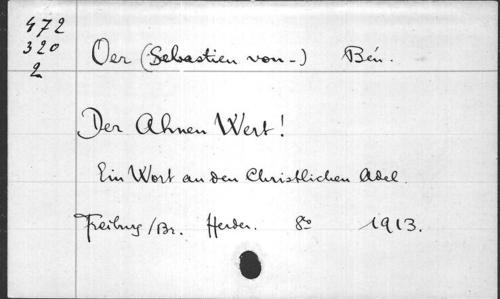 472
320
2
Oer (Sebastien von-) Bén.
Der Ahnen Wert!
Ein Wort an den Christlichen Adel.
Freiburg /Br. Herder. 8º 1913.